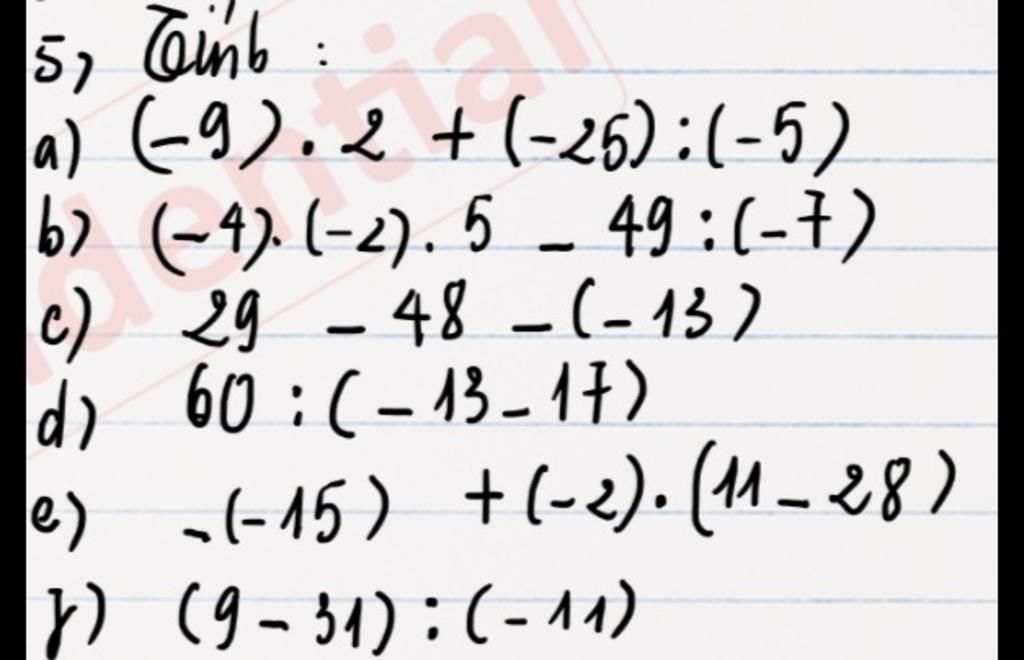 5) Tính :
a) (-9) . 2 + (-25) : (-5)
b) (-4) . (-2) . 5 - 49 : (-7)
c) 29 - 48 - (-13)
d) 60 : (-13 - 17)
e) -(-15) + (-2) . (11 - 28)
f) (9 - 31) : (-11)